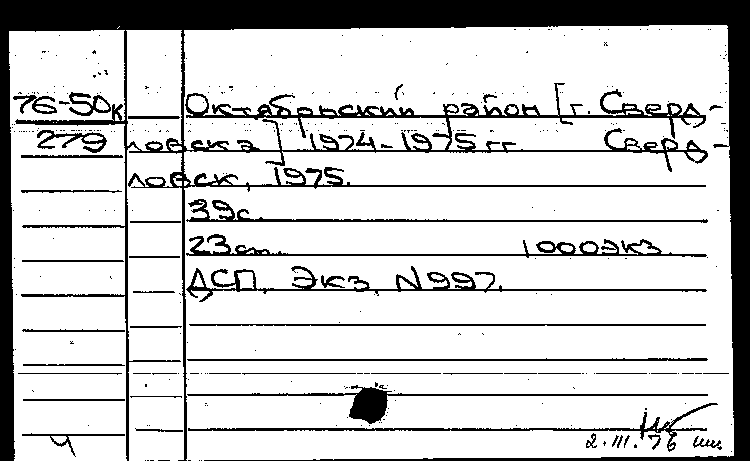 76-50к Октябрьский район [г. Сверд-
279 ловска] 1974-1975 гг. Сверд-
ловск, 1975.
39с.
23 см. 1000 экз.
ДСП. Экз. N 997.
2.III.76